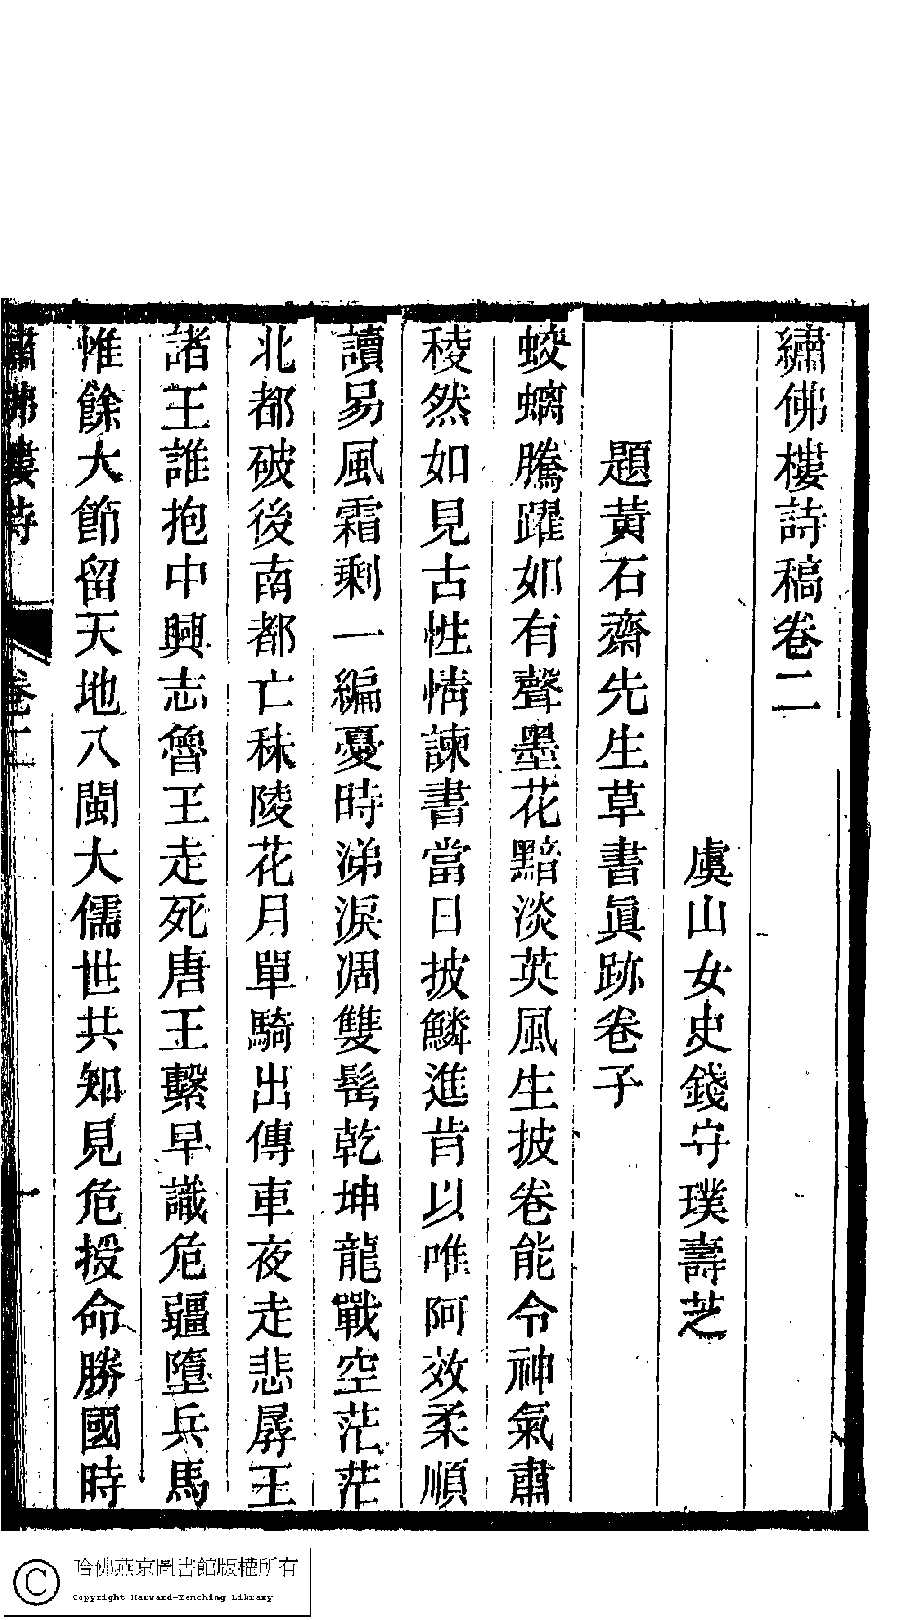 繡佛樓詩稿卷二
虞山女史錢守璞壽芝
題黃石齋先生草書眞跡卷子
蛟螭騰躍如有聲墨花黯淡英風生披卷能令神氣肅
稜然如見古性情諫書當日披鱗進肯以唯阿效柔順
讀易風霜剩一編憂時涕淚凋雙髩乾坤龍戰空茫茫
北都破後南都亡秣陵花月單騎出傳車夜走悲孱王
諸王誰抱中興志魯王走死唐王繫早識危疆墮兵馬
惟餘大節留天地八閩大儒世共知見危授命勝國時
繡佛樓詩 卷二 一
哈佛燕京圖書館版權所有
Copyright Harvard-Yenching Library